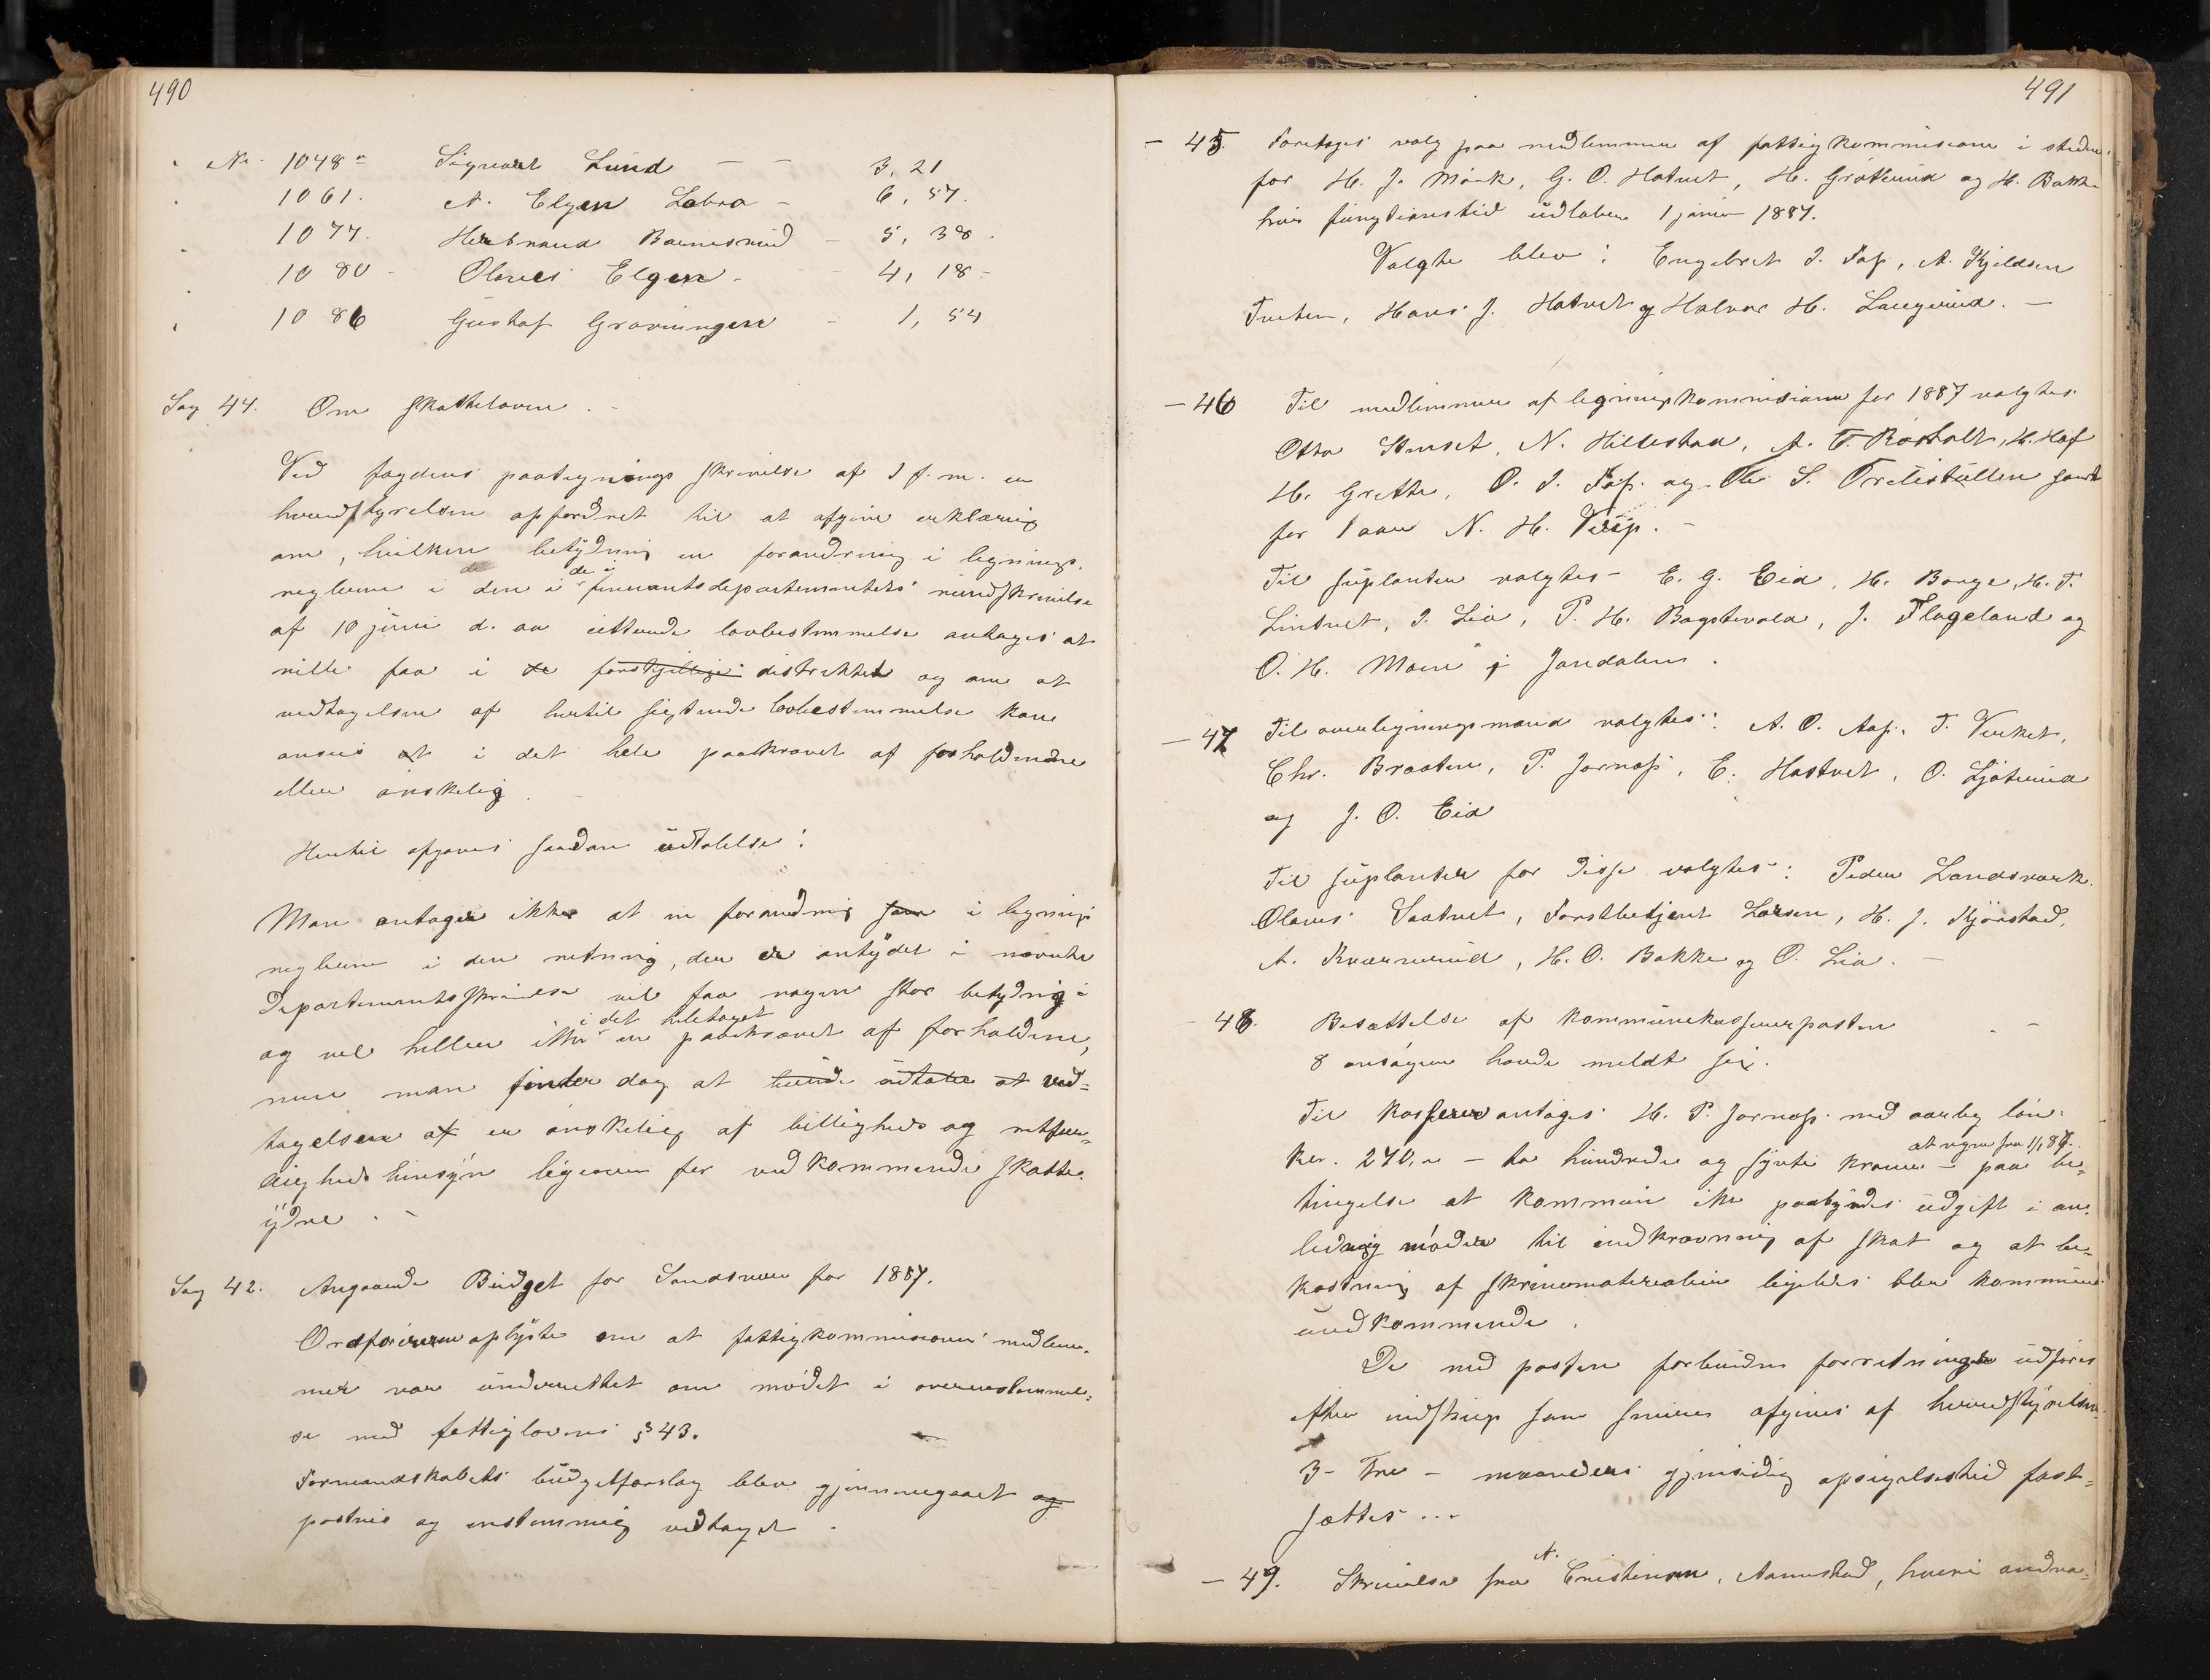 490
" No 1048 a Sigvart Lund — — 3, 21
" 1061. A. Elgen Labro - 6, 57.
" 1077. Herbrand Baernsrud - 5, 38 -
" 1080 - Olaves Elgen - 4, 18 -
" 1086 Gustaf Gravningen - 1, 54
Sag 44. Om skatteloven. -
Ved fogdens paategnings skrivelse af 1 f. m. er
herredstyrelsen opfordret til at afgive erklæring
om, hvilken betydning en forandring i lignings-
reglerne i den i de i finantsdepartementets rundskrivelse
af 10 juni d. aa. lovbestemmelse antages at
ville faa i de forskjellige distriktet og om at
vedtagelsen af hertil sigtende lovbestemmelse kan
ansees at i det hele paakrævet af forholdene
eller ønskelig. -
Hertil afgaves saadan udtalelse:
Man antager ikke at en forandring som i lignings
reglerne i den retning, der er antydet i nævnte
Departementsskrivelse vil faa nogen stor betydning i
og vel heller ikke i det heletaget er paakrævet af forholdene,
men man finder dog at burde udtale at ved-
tagelsen af er ønskelig af billigheds og retfær-
digheds hensyn ligeover for vedkommende skatte-
ydre. -
Sag 42. Angaaende Budget for Sandsvær for 1887.
Ordføreren oplyste om at fattigkommissionens medlem-
mer var underrettet om mødet i overensstemmel-
se med fattiglovens § 43.
Formandskabets budgetforslag blev gjennemgaaet og
postvis og enstemmig vedtaget.
491
- 45. Foretoges valg paa medlemmer af fattigkommissionen i stedet
for H. J. Mørk, G. O. Hatvet, H. Grøterud og H. Bakke
hvis fungtionstid udløber 1 januar 1887.
Valgte blev: Engebret I. Fos, A. Kjeldsen
Tveten, Hans J. Hatvet og Halvor H. Langerud. —
- 46 Til medlemmer af ligningskommissionen for 1887 valgtes
Otto Stenset, N. Hillestad, A. T. Røsholt, H. Hof
H. Grette, O. I. Fos. og Ole S. Trelistullen samt
for 1 aar N. H. Teigen. -
Til suplanter valgtes - E. G. Eid, H. Borge, H. T.
Lintvet, I. Lia, P. H. Bagstevold, J. Flageland og
O. H. Moen i Jondalen.
- 47 Til overligningsmænd valgtes: A. O. Aas, T. Verket,
Chr. Braaten, P. Jornæss, E. Hostvet, O. Ljøterud
og J. O. Eid
Til suplanter for disse valgtes: Peder Landsværk
Olaves Saatvet, Forstbetjent Larsen, H. J. Kjørstad,
A. Kværnerud, H. O. Bakke og O. Lia. -
- 48. Besættelse af kommunekassererposten - -
8 ansøgere havde meldt sig.
Til kasserer antoges H. P. Jornæss med aarlig løn
Kr. 270,00 - to hundrede og sytti kroner - at regne fra 1/1 87. paa be-
tingelse at kommunen ikke paabyrdes udgift i an-
ledning møder til indkrævning af skat og at be-
kostning af skrivematerialier ligeledes blev kommunen
uvedkommende.
De med posten forbundne forretninger udføres
efter indstrux som senere afgives af herredstyrelsen.
3 - Tre - maaneders gjensidig opsigelsestid fast-
sættes...
- 49. Skrivelse fra A. Cristensen, Aannestad, hvori andra-